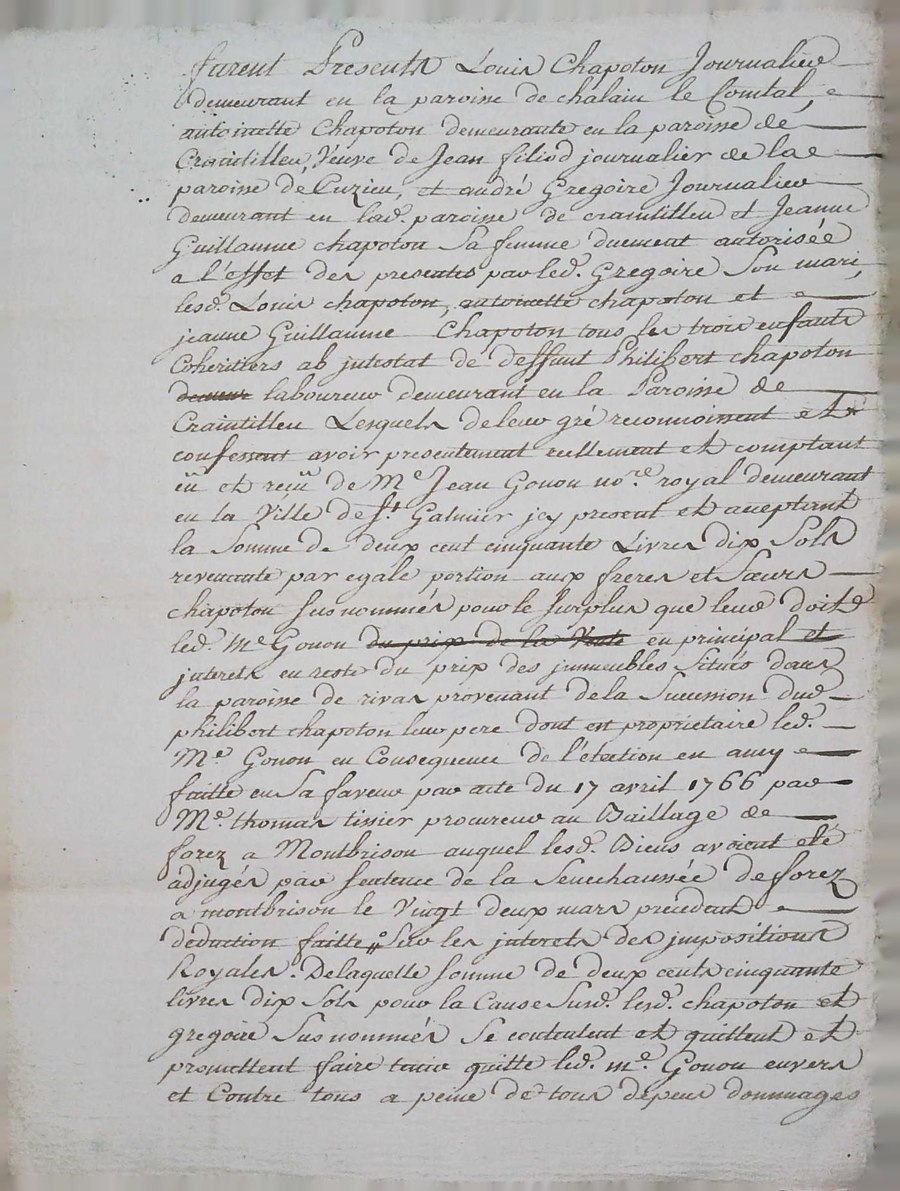 furent Presents Louis Chapoton Journalier
demeurant en la paroisse de chalain le Comtal,
antoinette Chapoton demeurante en la paroisse de
Craintilleu, Veuve de Jean filiod journalier de la
paroisse de Cuzieu, et andré Gregoire Journalier
demeurant en lad. paroisse de craintilleu et Jeanne
Guillaume chapoton sa femme duement autorisée
a l'effet des presentes par led. Gregoire son mari,
lesd. Louis chapoton, antoinette chapoton et
jeanne Guillaume Chapoton tous les trois enfants
Coheritiers ab intestat de deffunt Philibert chapoton
laboureur demeurant en la Paroisse de
Craintilleu Lesquels de leur gré reconnoissent et
confessent avoir presentement reellement et comptant
eu et reçu de Me Jean Gonon nore royal demeurant
en la Ville de St Galmier icy present et acceptant
la somme de deux cent cinquante Livres dix Sols
revenante par egale portion aux freres et sœurs
chapoton susnommés pour le surplus que leur doit
led. Me Gonon du prix de la Vente en principal et
interets en reste du prix des immeubles situés dans
la paroisse de rivas provenant de la Succession dud.
philibert chapoton leur pere dont est propriétaire led.
Me Gonon en Consequence de l'election en amy
faitte en sa faveur par acte du 17 avril 1766 par
Me thomas tissier procureur au Baillage de
forez a Montbrison auquel lesd. Biens avoient eté
adjugés par sentence de la Senechaussée de forez
a montbrison le Vingt deux mars precedent
deduction faitte sur les interets des impositions
Royales. De laquelle somme de deux cents cinquante
livres dix Sols pour la Cause susd. lesd. chapoton et
gregoire susnommés se contentent et quittent et
promettent faire tenir quitte led. me Gonon envers
et Contre tous a peine de tous depens dommages